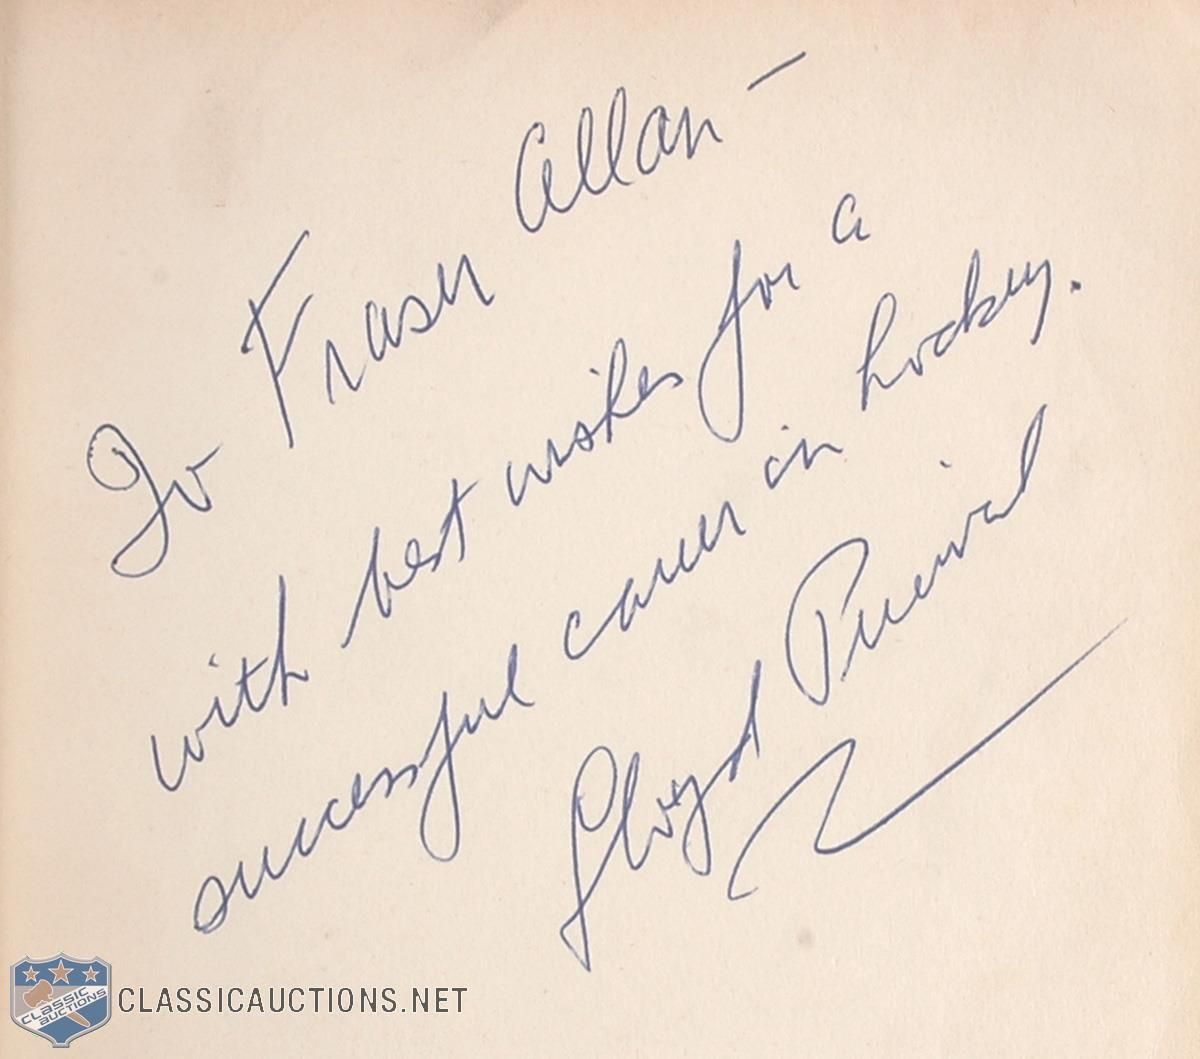 To Fraser Allan —
with best wishes for a
successful career in hockey.
Lloyd Percival
CLASSIC
AUCTIONS
CLASSICAUCTIONS.NET